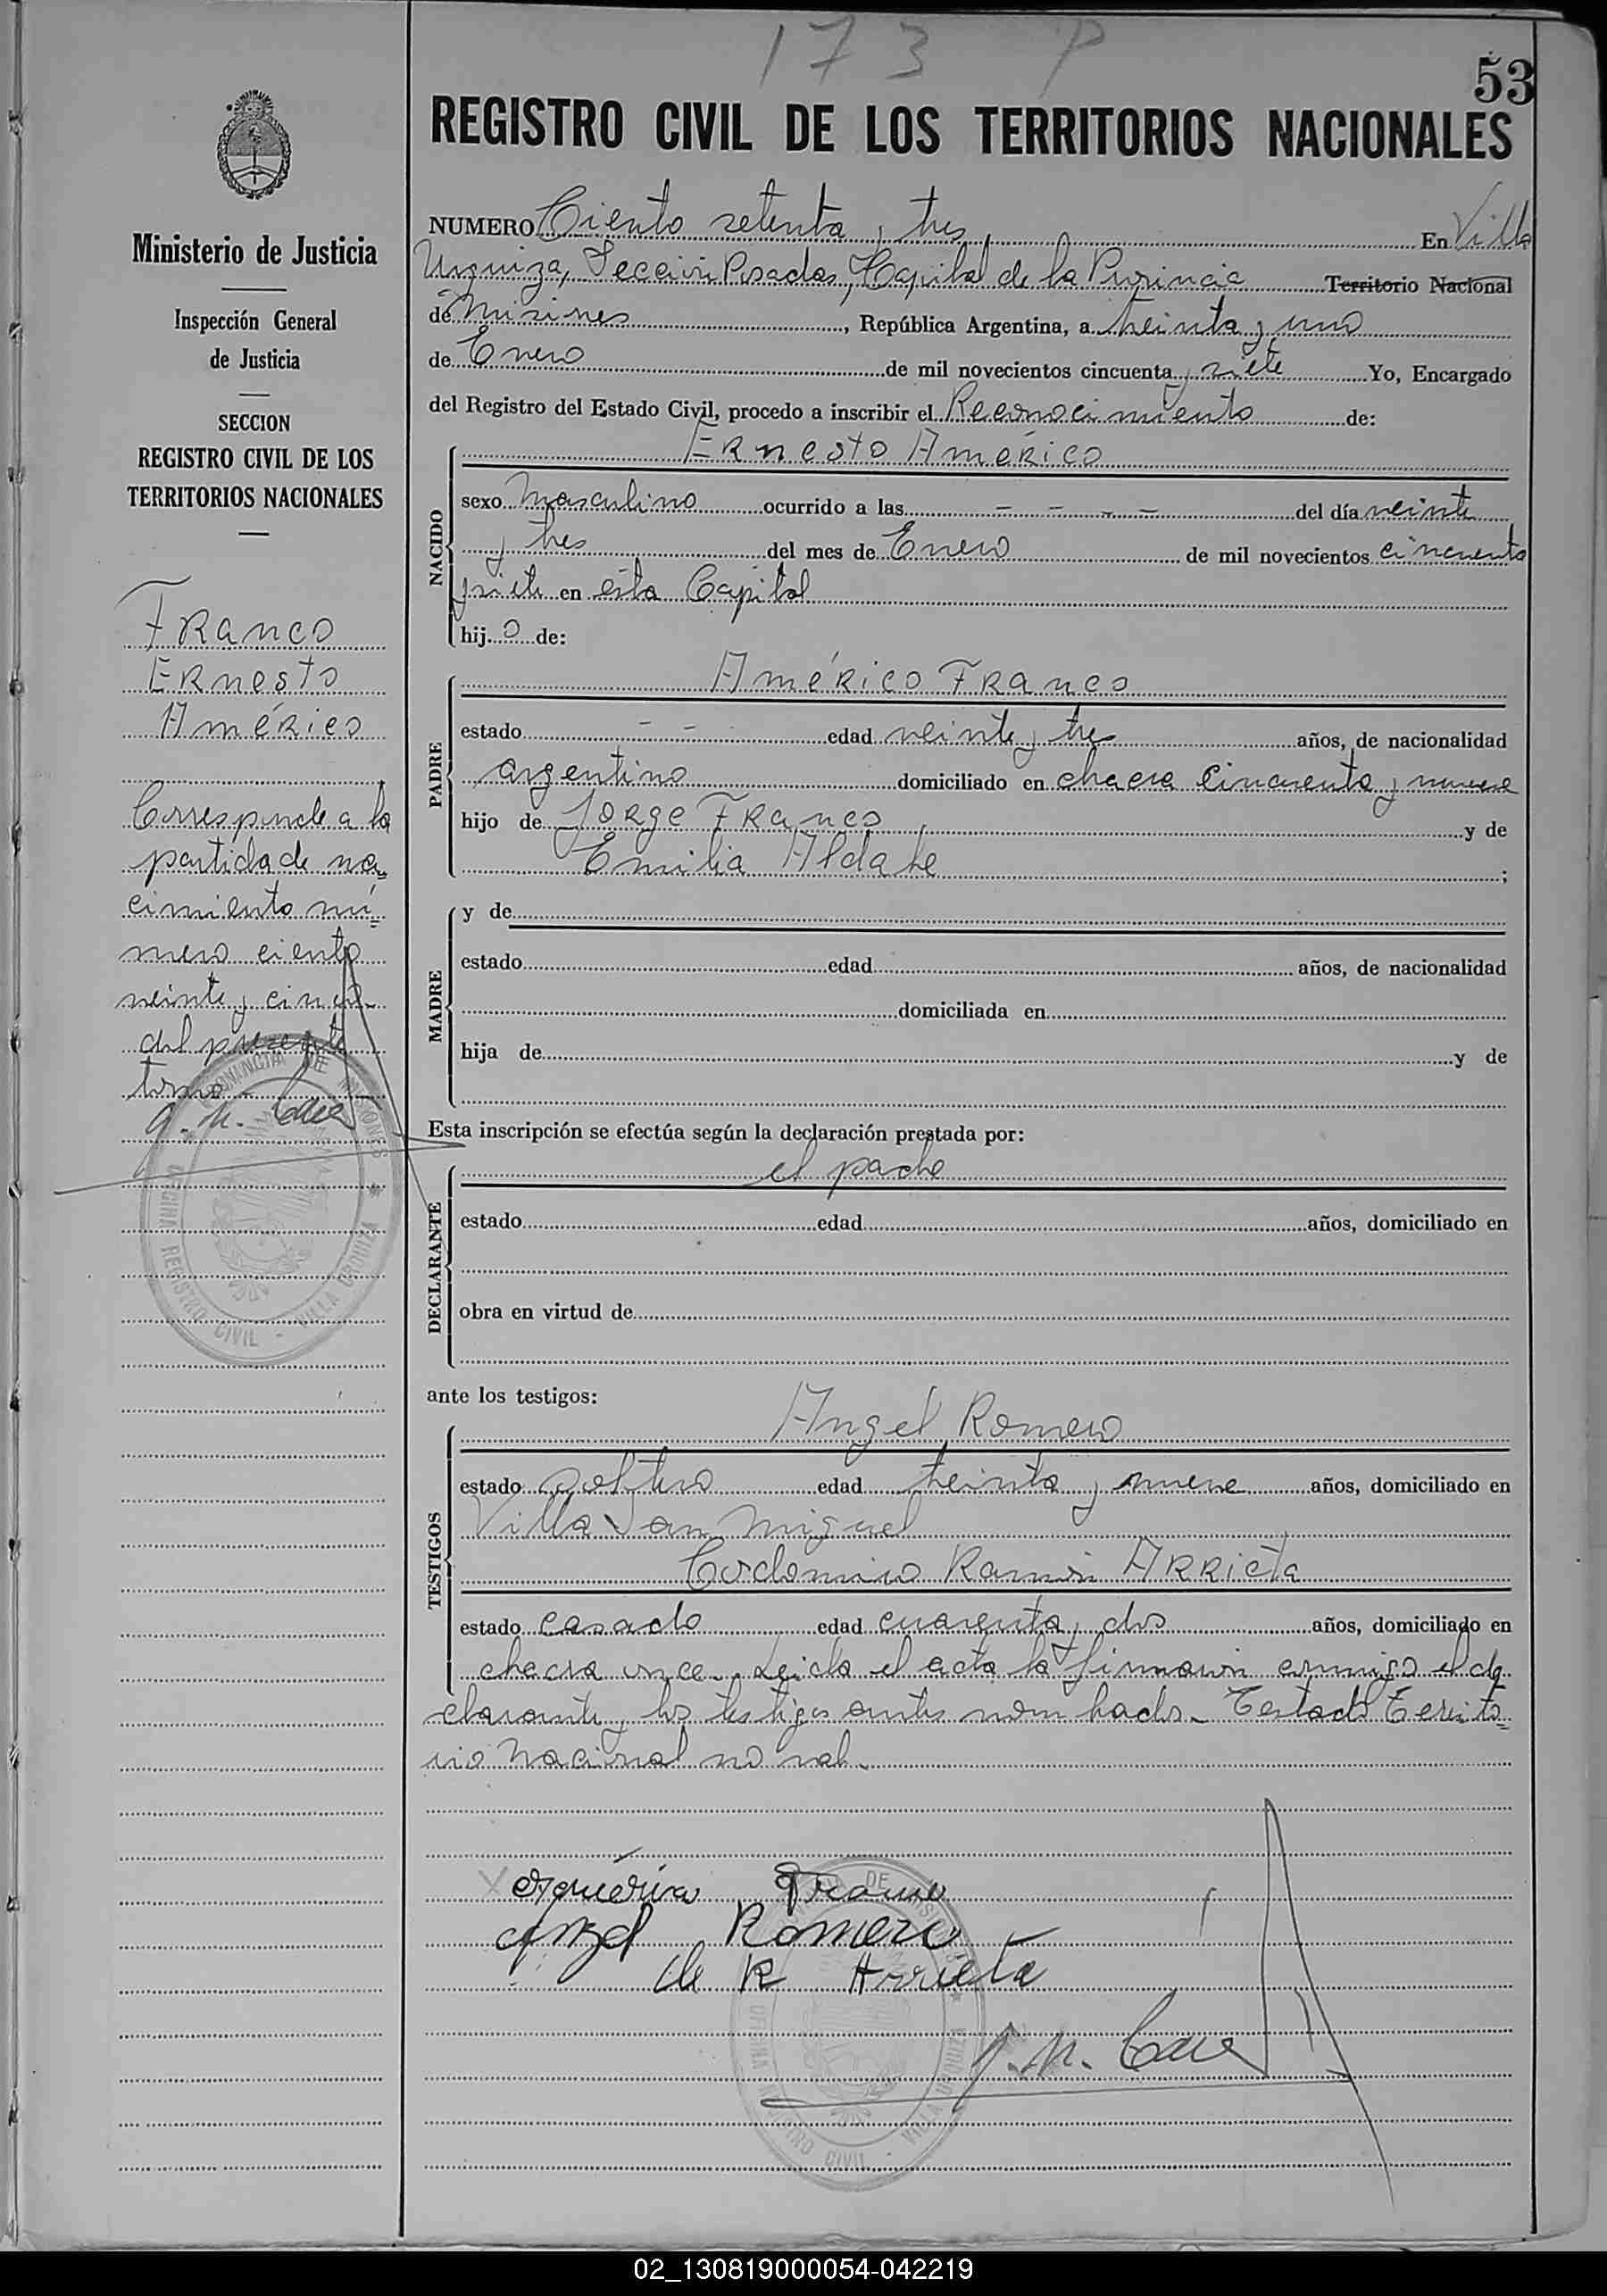 173 P
53
REGISTRO CIVIL DE LOS TERRITORIOS NACIONALES
Ministerio de Justicia
Inspección General
de Justicia
SECCION
REGISTRO CIVIL DE LOS
TERRITORIOS NACIONALES
Franco
Ernesto
Américo
Corresponde a la
partida de na-
cimiento nú=
mero ciento
veinte y cinco
del presente
tomo
PROVINCIA DE MISIONES
OFICINA REGISTRO CIVIL - VILLA URQUIZA
NUMERO Ciento setenta y tres En Villa
Urquiza, Sección Posadas, Capital de la Provincia Territorio Nacional
de Misiones, República Argentina, a treinta y uno
de Enero de mil novecientos cincuenta y siete Yo, Encargado
del Registro del Estado Civil, procedo a inscribir el Reconocimiento de:
NACIDO
Ernesto Américo
sexo masculino ocurrido a las - - - - del día veinte
y tres del mes de Enero de mil novecientos cincuenta
y siete en esta Capital
hijo de:
PADRE
Américo Franco
estado - - edad veinte y tres años, de nacionalidad
argentino domiciliado en chacra cincuenta y nueve
hijo de Jorge Franco y de
Emilia Aldate ;
MADRE
y de
estado edad años, de nacionalidad
domiciliada en
hija de y de
Esta inscripción se efectúa según la declaración prestada por:
DECLARANTE
el padre
estado edad años, domiciliado en
obra en virtud de
ante los testigos:
TESTIGOS
Angel Romero
estado soltero edad treinta y nueve años, domiciliado en
Villa San Miguel
Ramón Arrieta
estado casado edad cuarenta y dos años, domiciliado en
chacra once. Leida el acta la firmaron conmigo el de
clarante y los testigos antes nombrados. Testado Territo=
rio Nacional no vale.
Franco
Angel Romero
R Arrieta
OFICINA REGISTRO CIVIL - VILLA URQUIZA
02_130819000054-042219